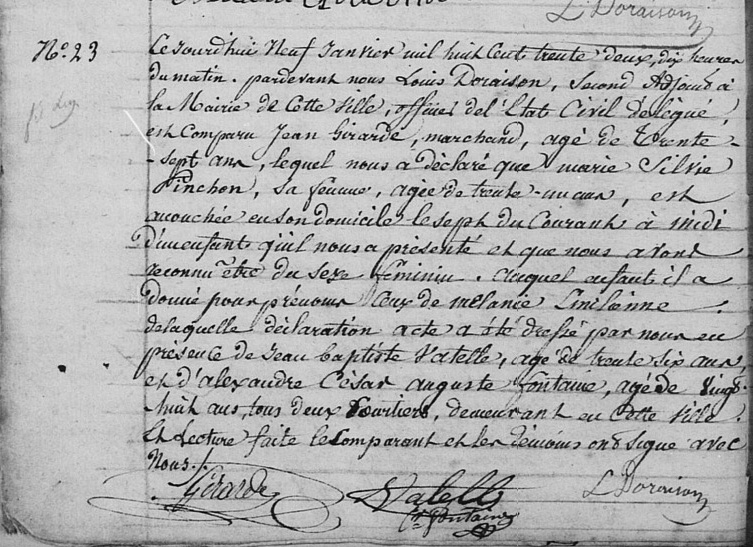 L Doraison
N.º 23
Ce jourd'hui Neuf Janvier mil huit Cent trente deux, dix heures
du matin. pardevant nous Louis Doraison, Second Adjoint à
la Mairie de Cette Ville, officier del'État Civil délégué,
est Comparu Jean Girarde, marchand, agé de Trente-
-sept ans, lequel nous a déclaré que marie Silvie
Pinchon, sa femme, agée de trente-un ans, est
accouchée en son domicile le sept du Courant à midi
d'un enfant qu'il nous a présenté et que nous avons
reconnu être du sexe féminin. auquel enfant il a
donné pour prénoms Ceux de mélanie
delaquelle déclaration acte a été dressé par nous en
présence de Jean baptiste Vatelle, agé de trente six ans,
et d'alexandre César auguste fontaine, agé de vingt-
-huit ans tous deux, demeurant en Cette Ville.
Et Lecture faite le Comparant et les témoins ont signé avec
Nous./.
Girarde
Vatelle
fontaine
L Doraison